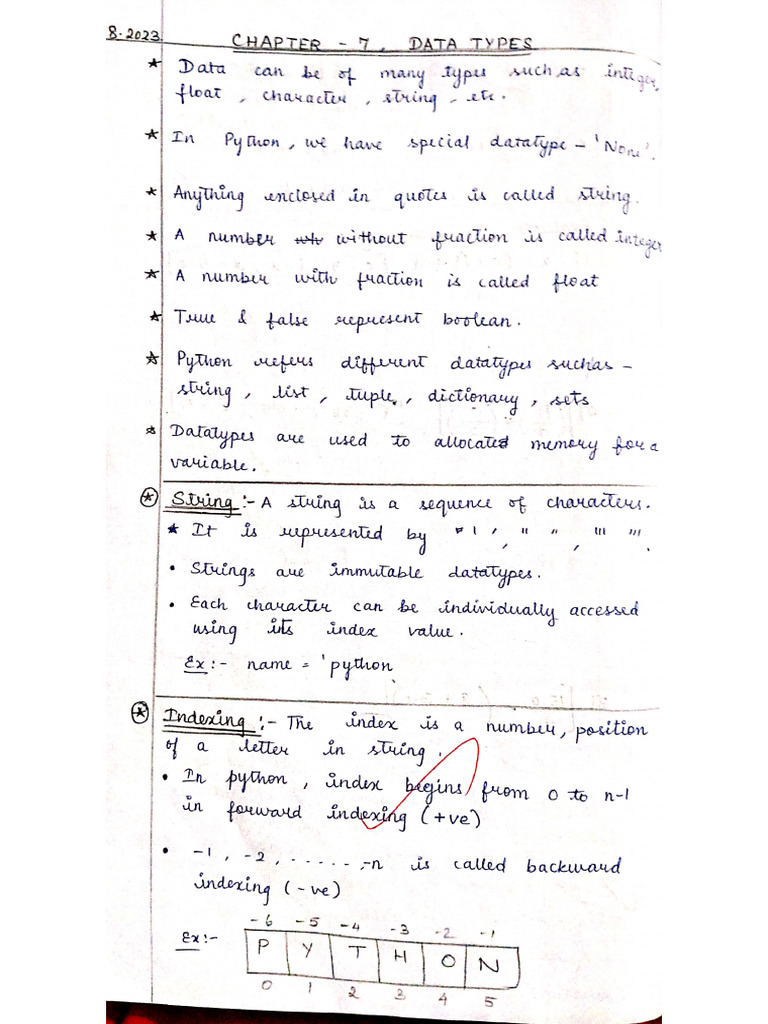 8-2023
CHAPTER - 7, DATA TYPES
* Data can be of many types such as integer,
float, character, string, etc.
* In Python, we have special datatype - 'None'.
* Anything enclosed in quotes is called string.
* A number without fraction is called integer
* A number with fraction is called float
* True & false represent boolean.
* Python refers different datatypes such as -
string, list, tuple, dictionary, sets
* Datatypes are used to allocated memory for a
variable.
* String :- A string is a sequence of characters.
* It is represented by ' ', " ", ''' '''.
• Strings are immutable datatypes.
• Each character can be individually accessed
using its index value.
Ex:- name = 'python
* Indexing :- The index is a number, position
of a letter in string.
• In python, index begins from 0 to n-1
in forward indexing (+ve)
• -1, -2, ......, -n is called backward
indexing (-ve)
-6 -5 -4 -3 -2 -1
Ex:- P Y T H O N
0 1 2 3 4 5